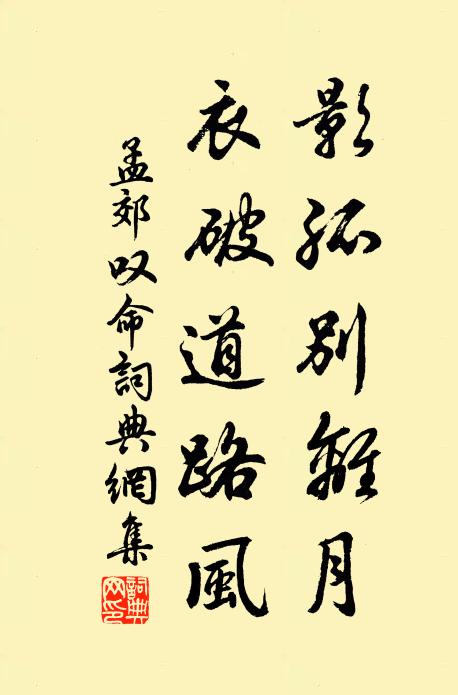 影孤別離月
衣破道路風
孟郊叹命詞典網集
詞典網印